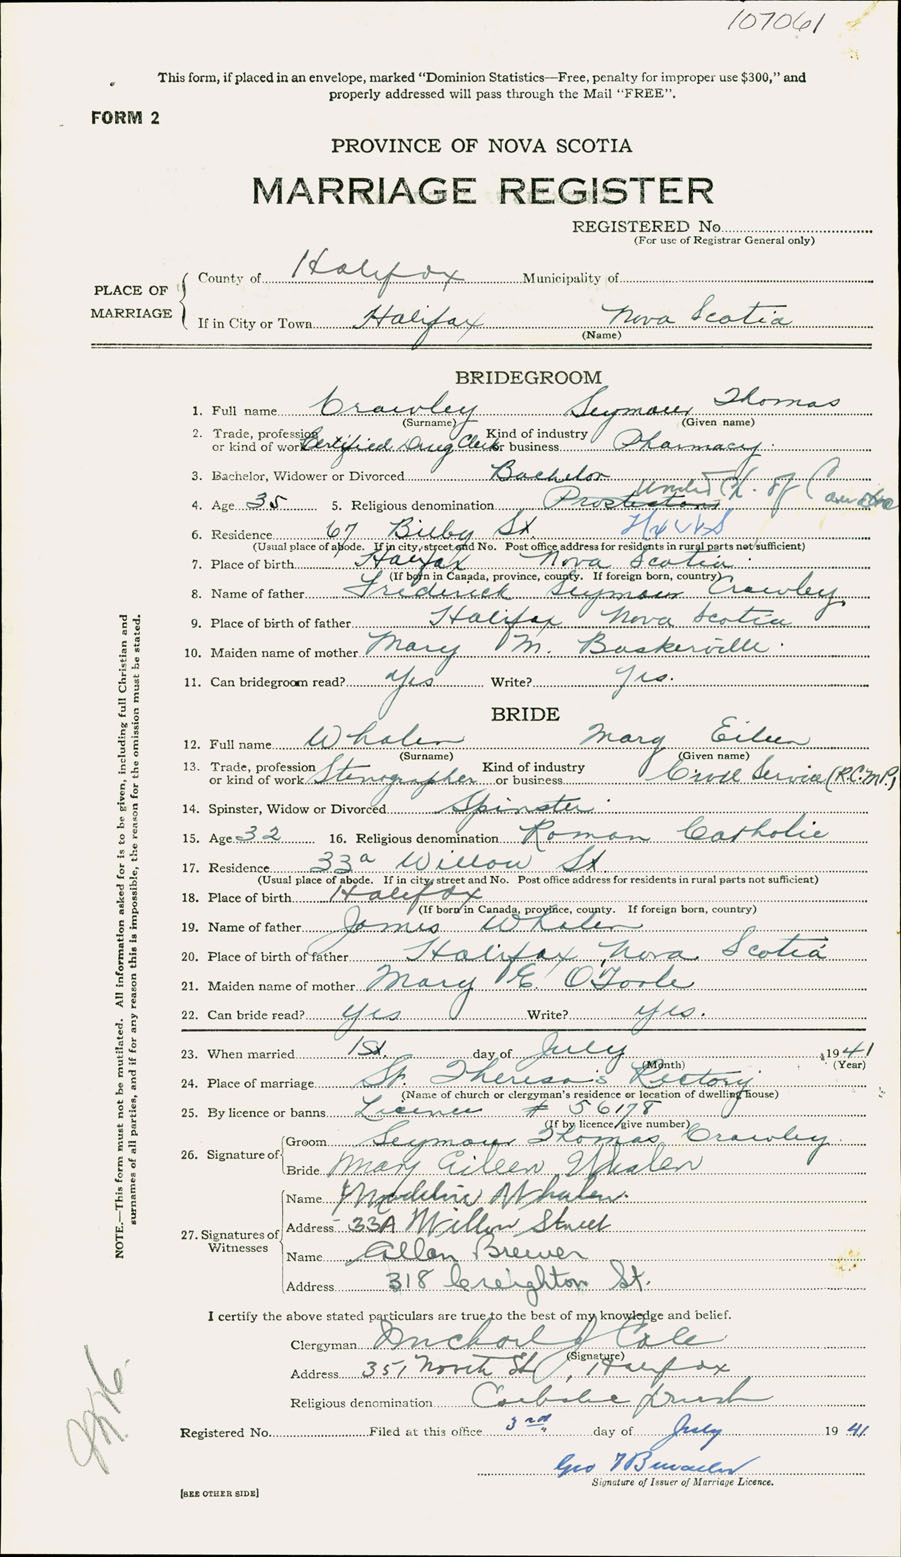 107061
This form, if placed in an envelope, marked "Dominion Statistics—Free, penalty for improper use $300," and
properly addressed will pass through the Mail "FREE".
FORM 2
PROVINCE OF NOVA SCOTIA
MARRIAGE REGISTER
REGISTERED No.
(For use of Registrar General only)
PLACE OF MARRIAGE
County of Halifax Municipality of
If in City or Town Halifax Nova Scotia
(Name)
BRIDEGROOM
1. Full name Crawley Seymour Thomas
(Surname) (Given name)
2. Trade, profession or kind of work Certified Drug Clerk Kind of industry or business Pharmacy.
3. Bachelor, Widower or Divorced Bachelor
United Ch. of Canada
4. Age 35 5. Religious denomination Protestant
6. Residence 67 Bilby St. Hfx N.S
(Usual place of abode. If in city, street and No. Post office address for residents in rural parts not sufficient)
7. Place of birth Halifax Nova Scotia
(If born in Canada, province, county. If foreign born, country)
8. Name of father Frederick Seymour Crawley
9. Place of birth of father Halifax Nova Scotia
10. Maiden name of mother Mary M. Baskerville
11. Can bridegroom read? Yes Write? Yes.
BRIDE
12. Full name Whalen Mary Eileen
(Surname) (Given name)
13. Trade, profession or kind of work Stenographer Kind of industry or business Civil Service (R.C.M.P.)
14. Spinster, Widow or Divorced Spinster
15. Age 32 16. Religious denomination Roman Catholic
17. Residence 33a Willow St
(Usual place of abode. If in city, street and No. Post office address for residents in rural parts not sufficient)
18. Place of birth Halifax
(If born in Canada, province, county. If foreign born, country)
19. Name of father James Whalen
20. Place of birth of father Halifax, Nova Scotia
21. Maiden name of mother Mary E. O'Toole
22. Can bride read? yes Write? yes.
23. When married 1st day of July 1941
(Month) (Year)
24. Place of marriage St. Theresa's Rectory
(Name of church or clergyman's residence or location of dwelling house)
25. By licence or banns Licence # 56178
(If by licence give number)
26. Signature of
Groom Seymour Thomas Crawley
Bride Mary Eileen Whalen
27. Signatures of Witnesses
Name Madeline Whalen.
Address 33A Willow Street
Name Allan Brewer
Address 318 Creighton St.
I certify the above stated particulars are true to the best of my knowledge and belief.
Clergyman Michael J Cole
(Signature)
Address 351 North St, Halifax
Religious denomination Catholic priest
Registered No. Filed at this office 3rd day of July 1941.
Geo
Signature of Issuer of Marriage Licence.
[SEE OTHER SIDE]
NOTE.—This form must not be mutilated. All information asked for is to be given, including full Christian and
surnames of all parties, and if for any reason this is impossible, the reason for the omission must be stated.